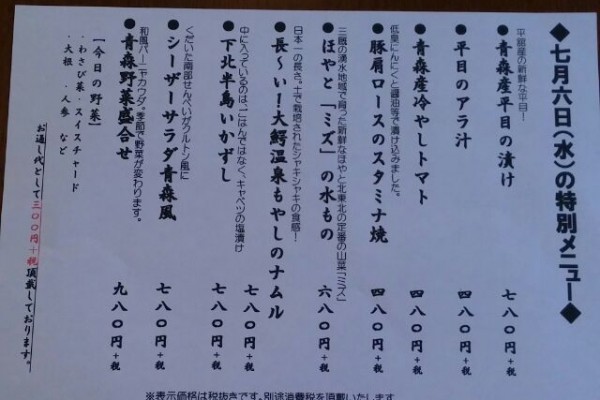 ◆七月六日(水)の特別メニュー◆
平舘産の新鮮な平目!
●青森産平目の漬け 七八〇円+税
●平目のアラ汁 四八〇円+税
●青森産冷やしトマト 四八〇円+税
低臭にんにくと醤油等で漬け込みました。
●豚肩ロースのスタミナ焼 四八〇円+税
三厩の湧水地域で育った新鮮なほやと北東北の定番の山菜「ミズ」
●ほやと「ミズ」の水もの 六八〇円+税
日本一の長さ。土で栽培されたシャキシャキの食感!
●長〜い!大鰐温泉もやしのナムル 七八〇円+税
中に入っているのは、ごはんではなく、キャベツの塩漬け
●下北半島いかずし 七八〇円+税
くだいた南部せんべいがクルトン風に
●シーザーサラダ青森風 七八〇円+税
和風バーニャカウダ。季節で野菜が変わります。
●青森野菜盛合せ 九八〇円+税
【今日の野菜】
・わさび菜・スイスチャード
・大根 ・人参 など
お通し代として三〇〇円+税頂戴しております。
※表示価格は税抜きです。別途消費税を頂戴いたします